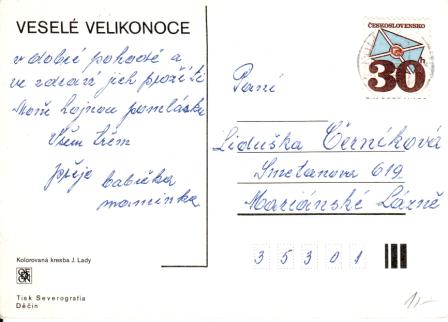 VESELÉ VELIKONOCE
v dobré pohodě a
ve zdraví jich prožití
hojnou pomlásku
Všem třem
přeje babička
maminka
Kolorovaná kresba J. Lady
Tisk Severografia
Děčín
ČESKOSLOVENSKO
30h
Paní
Liduška Černíková
Smetanova 619
Mariánské Lázně
35301
1,-